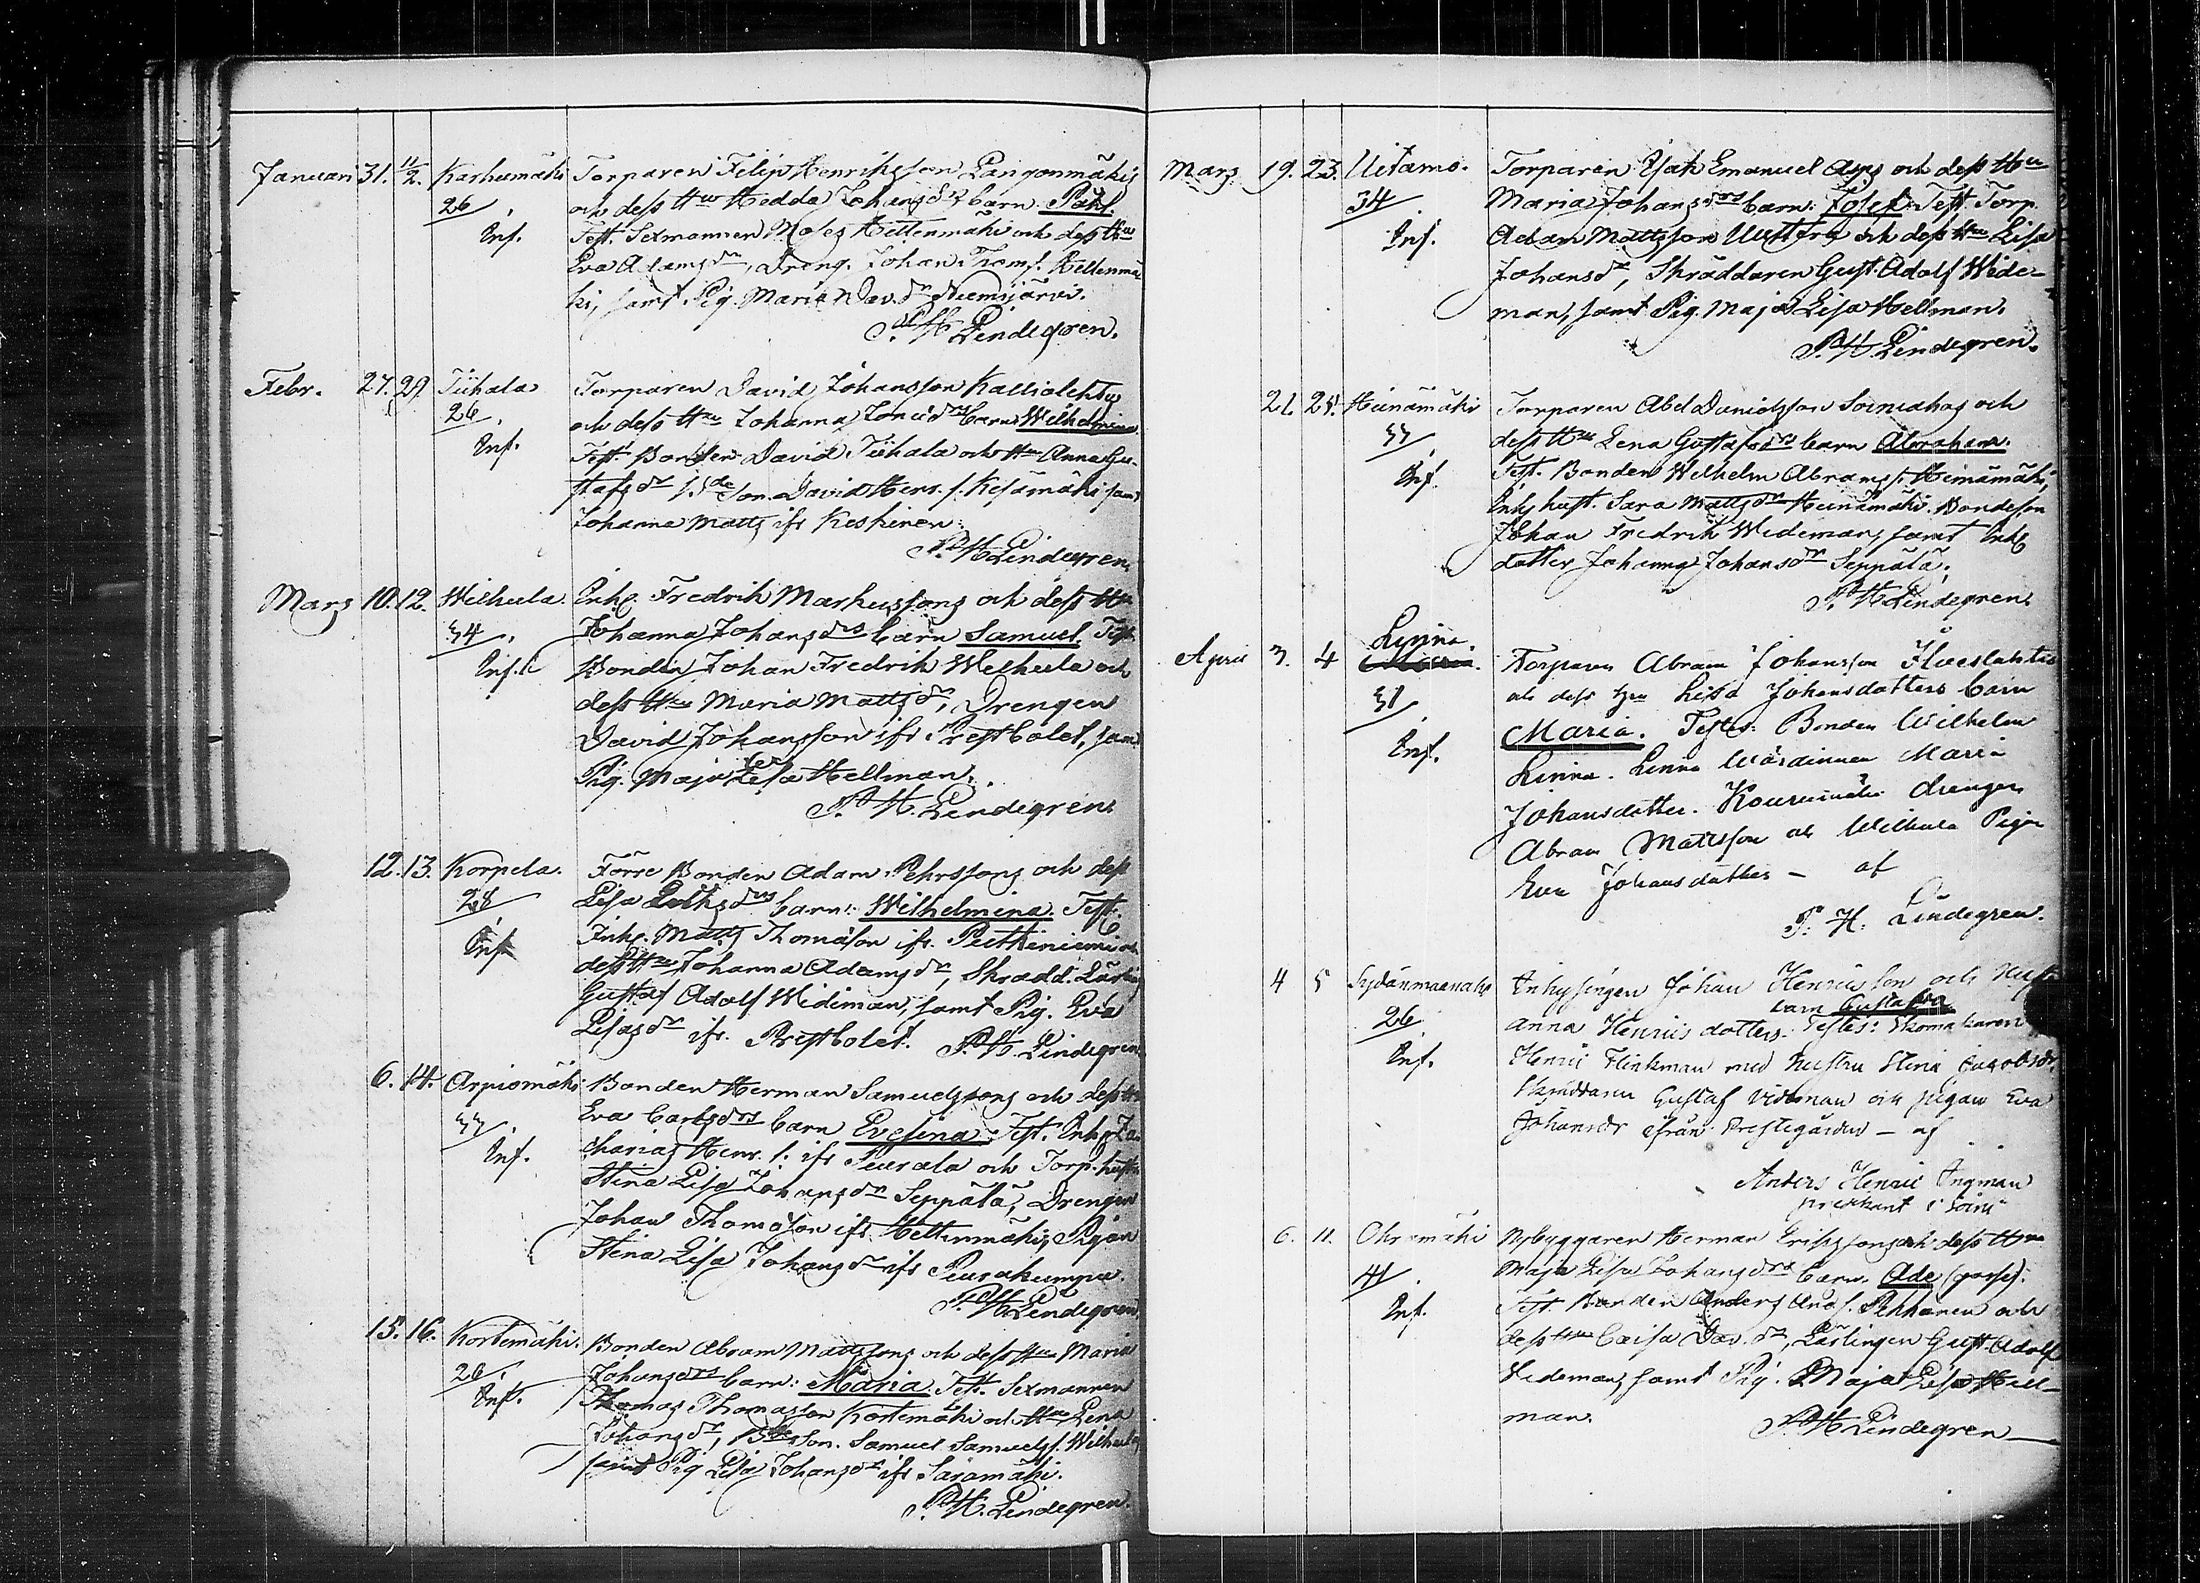 Januari 31. 11/2. Karhumäki Torparen Filip Henriksson Langonmäkis
26 och dess Hu Hedda Johansdrs barn. Pahl.
Inf. Test. Sexmannen Moses Hettenmäki och dess Hu
Eva Adamsdr, Dreng. Johan Thoms. Kellenmä
ki, samt Pig. Maria Dav.dr Niemisjärvi.
P. H. Lindegren.
Febr. 27. 29 Tiihala Torparen David Johansson Kalliolehtos
26. och dess Hu Johanna Zoriidrs barn Wilhelmina
Inf. Test. Bonden David Tiihala och Hu Anna Gu-
stafsdr, Bde Son. David Henr. s. Kesämäki samt
Johanna Matts ifr Keskinen.
P. H. Lindegren.
Mars 10. 12. Wilhula Inhs. Fredrik Markussons och dess Hu
34. Johanna Johansdrs barn Samuel. Test.
Inf. Bonden Johan Fredrik Wilhula och
dess Hu Maria Mattsdr, Drengen
David Johansson ifr Prestbolet, samt
Pig. Maja Lisa Hellman.
P. H. Lindegren.
12. 13. Korpela. Förre Bonden Adam Pehrssons och dess
28 Lisa drs barn: Wilhelmina. Test.
Inf. Inhs. Matts Thomasson ifr. Peithiniemi och
dess Hu Johanna Adamsdr, Skrädd. Lärling
Gustaf Adolf Wideman, samt Pig. Eva
Lisasdr ifr. Prestbolet. P. H. Lindegren.
6. 14. Arpiomäki Bonden Herman Samuelssons och dess Hu
33. Eva Carlsdrs barn Evelina. Test. Inhs. Za-
Inf. charias Henr. s. ifr Peurala och Torp. hustr.
Stina Lisa Johansdr Seppälä, Drengen
Johan Thomasson ifr Hettenmäki, Pigan
Stina Lisa Johansdr ifr Peurakumpu.
P. H. Lindegren.
15. 16. Kortemäki. Bonden Abram Mattssons och dess Hu Maria
26. Johansdrs barn: Maria. Test. Sexmannen
Inf. Thomas Thomasson Kortemäki och Hu Lena
Johansdr, Bde Son. Samuel Samuelss. Wilhula
samt Pig Lisa Johansdr ifr Saramäki.
P. H. Lindegren.
Mars 19. 23. Uitamo. Torparen Isak Emanuel Asps och dess Hu
34 Maria Johansdrs barn: Josef. Test. Torp.
Inf. Adam Mattsson och dess Hu Lisa
Johansdr, Skräddaren Gust. Adolf Wide-
man, samt Pig. Maja Lisa Hellman.
P. H. Lindegren.
21. 25. Heinämäki Torparen Abel Danielsson Soiniahos och
33 dess Hu Lena Gustafsdrs barn Abraham.
Inf. Test. Bonden Wilhelm Abramss. Heinämäki,
Inhs hust. Sara Mattsdr Heinämäki. Bondeson
Johan Fredrik Wideman, samt Inhs
dotter Johanna Johansdr Seppälä.
P. H. Lindegren.
April 3. 4 Linna. Torparen Abram Johansson
31 och dess Hu Lisa Johansdotters barn
Inf. Maria. Testes: Bonden Wilhelm
Linna. Linna Wärdinnan Maria
Johansdotter. drengen
Abram Mattsson och Wilhula Pigan
Eva Johansdotter — af
P. H. Lindegren.
4 5 Sydänmaanaho Inhysingen Johan Henricsson och Hustr
barn Gustafva
26 Anna Henricsdotters. Testes: Skomakaren
Inf. Henric Flinkman med hustru Stina Jacobsdr.
Skräddaren Gustaf Videman och pigan Eva
Johansdr ifrån Prestegården — af
Anders Henric Ingman
predikant i Soini
6. 11. Ohramäki Nybyggaren Herman Erikssons och dess Hu
41. Maja Lisa Johansdrs barn. Ade (gosse).
Inf. Test. Bonden Anders And s. Pekkanen och
dess Hu Caisa Dav. dr, Lärlingen Gust. Adolf
Videman, samt Pig. Maja Lisa Hell-
man.
P. H. Lindegren